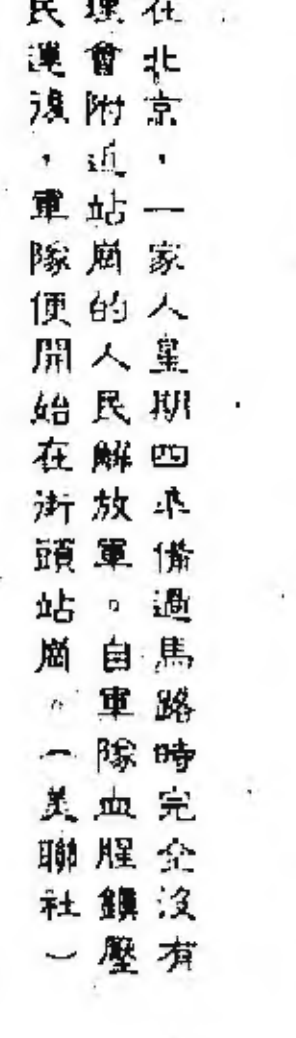 在北京，一家人星期四準備過馬路時完全沒有
理會附近站崗的人民解放軍。自軍隊血腥鎮壓
民運後，軍隊便開始在街頭站崗。（美聯社）